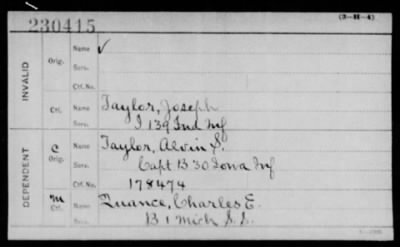 230415
(3-H-4)
INVALID
Orig.
Name ✓
Serv.
Ctf. No.
Ctf.
Taylor, Joseph
I 139 Ind Inf
DEPENDENT
C
Orig.
Name Taylor, Alvin S.
Serv. Capt B 30 Iowa Inf
Ctf. No. 178474
M
Ctf.
Name Quance, Charles E.
Serv. B 1 Mich S.S.